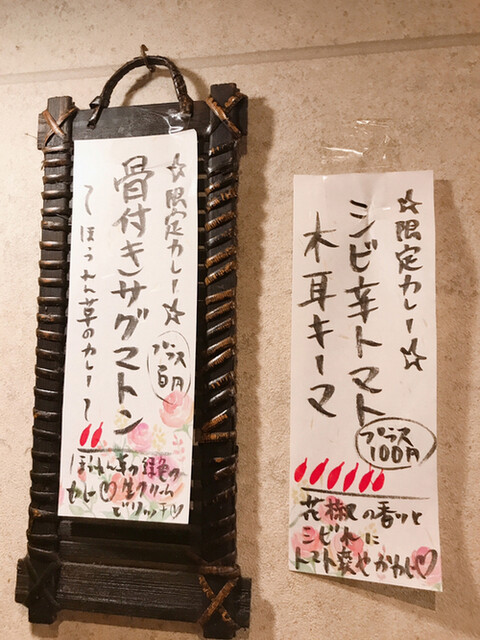 ☆限定カレー☆
骨付きサグマトン
〜ほうれん草のカレー〜
プラス
円
ほうれん草の緑色の
カレー♡生クリーム
でリッチ♡
☆限定カレー☆
シビ辛トマト
木耳キーマ
プラス
100円
花椒の香りと
シビれに
トマト爽やかカレー♡